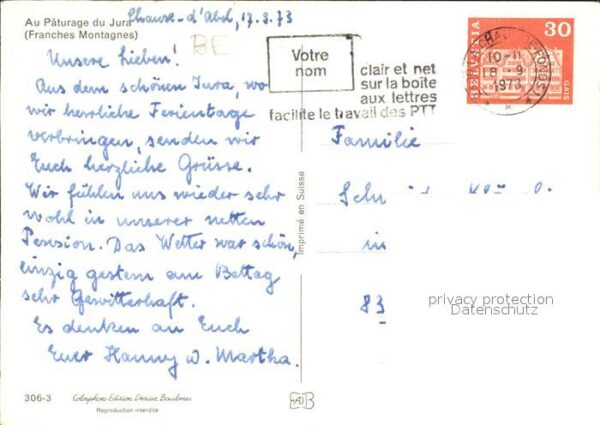 Au Pâturage du Jura
(Franches Montagnes)
Chaux-d'Abel, 17.9.73
BE
Unsere Lieben!
Aus dem schönen Jura, wo
wir herrliche Ferientage
verbringen, senden wir
Euch herzliche Grüsse.
Wir fühlen uns wieder sehr
wohl in unserer netten
Pension. Das Wetter war schön,
einzig gestern am Bettag
sehr Gewitterhaft.
Es denken an Euch
Euer Hanny u. Martha.
306-3
Colorphoto Edition Deriaz Baulmes
Reproduction interdite
Imprimé en Suisse
Votre
nom
clair et net
sur la boîte
aux lettres
facilite le travail des PTT
HELVETIA
30
GAIS
10-11
1973
Familie
in
83
privacy protection
Datenschutz